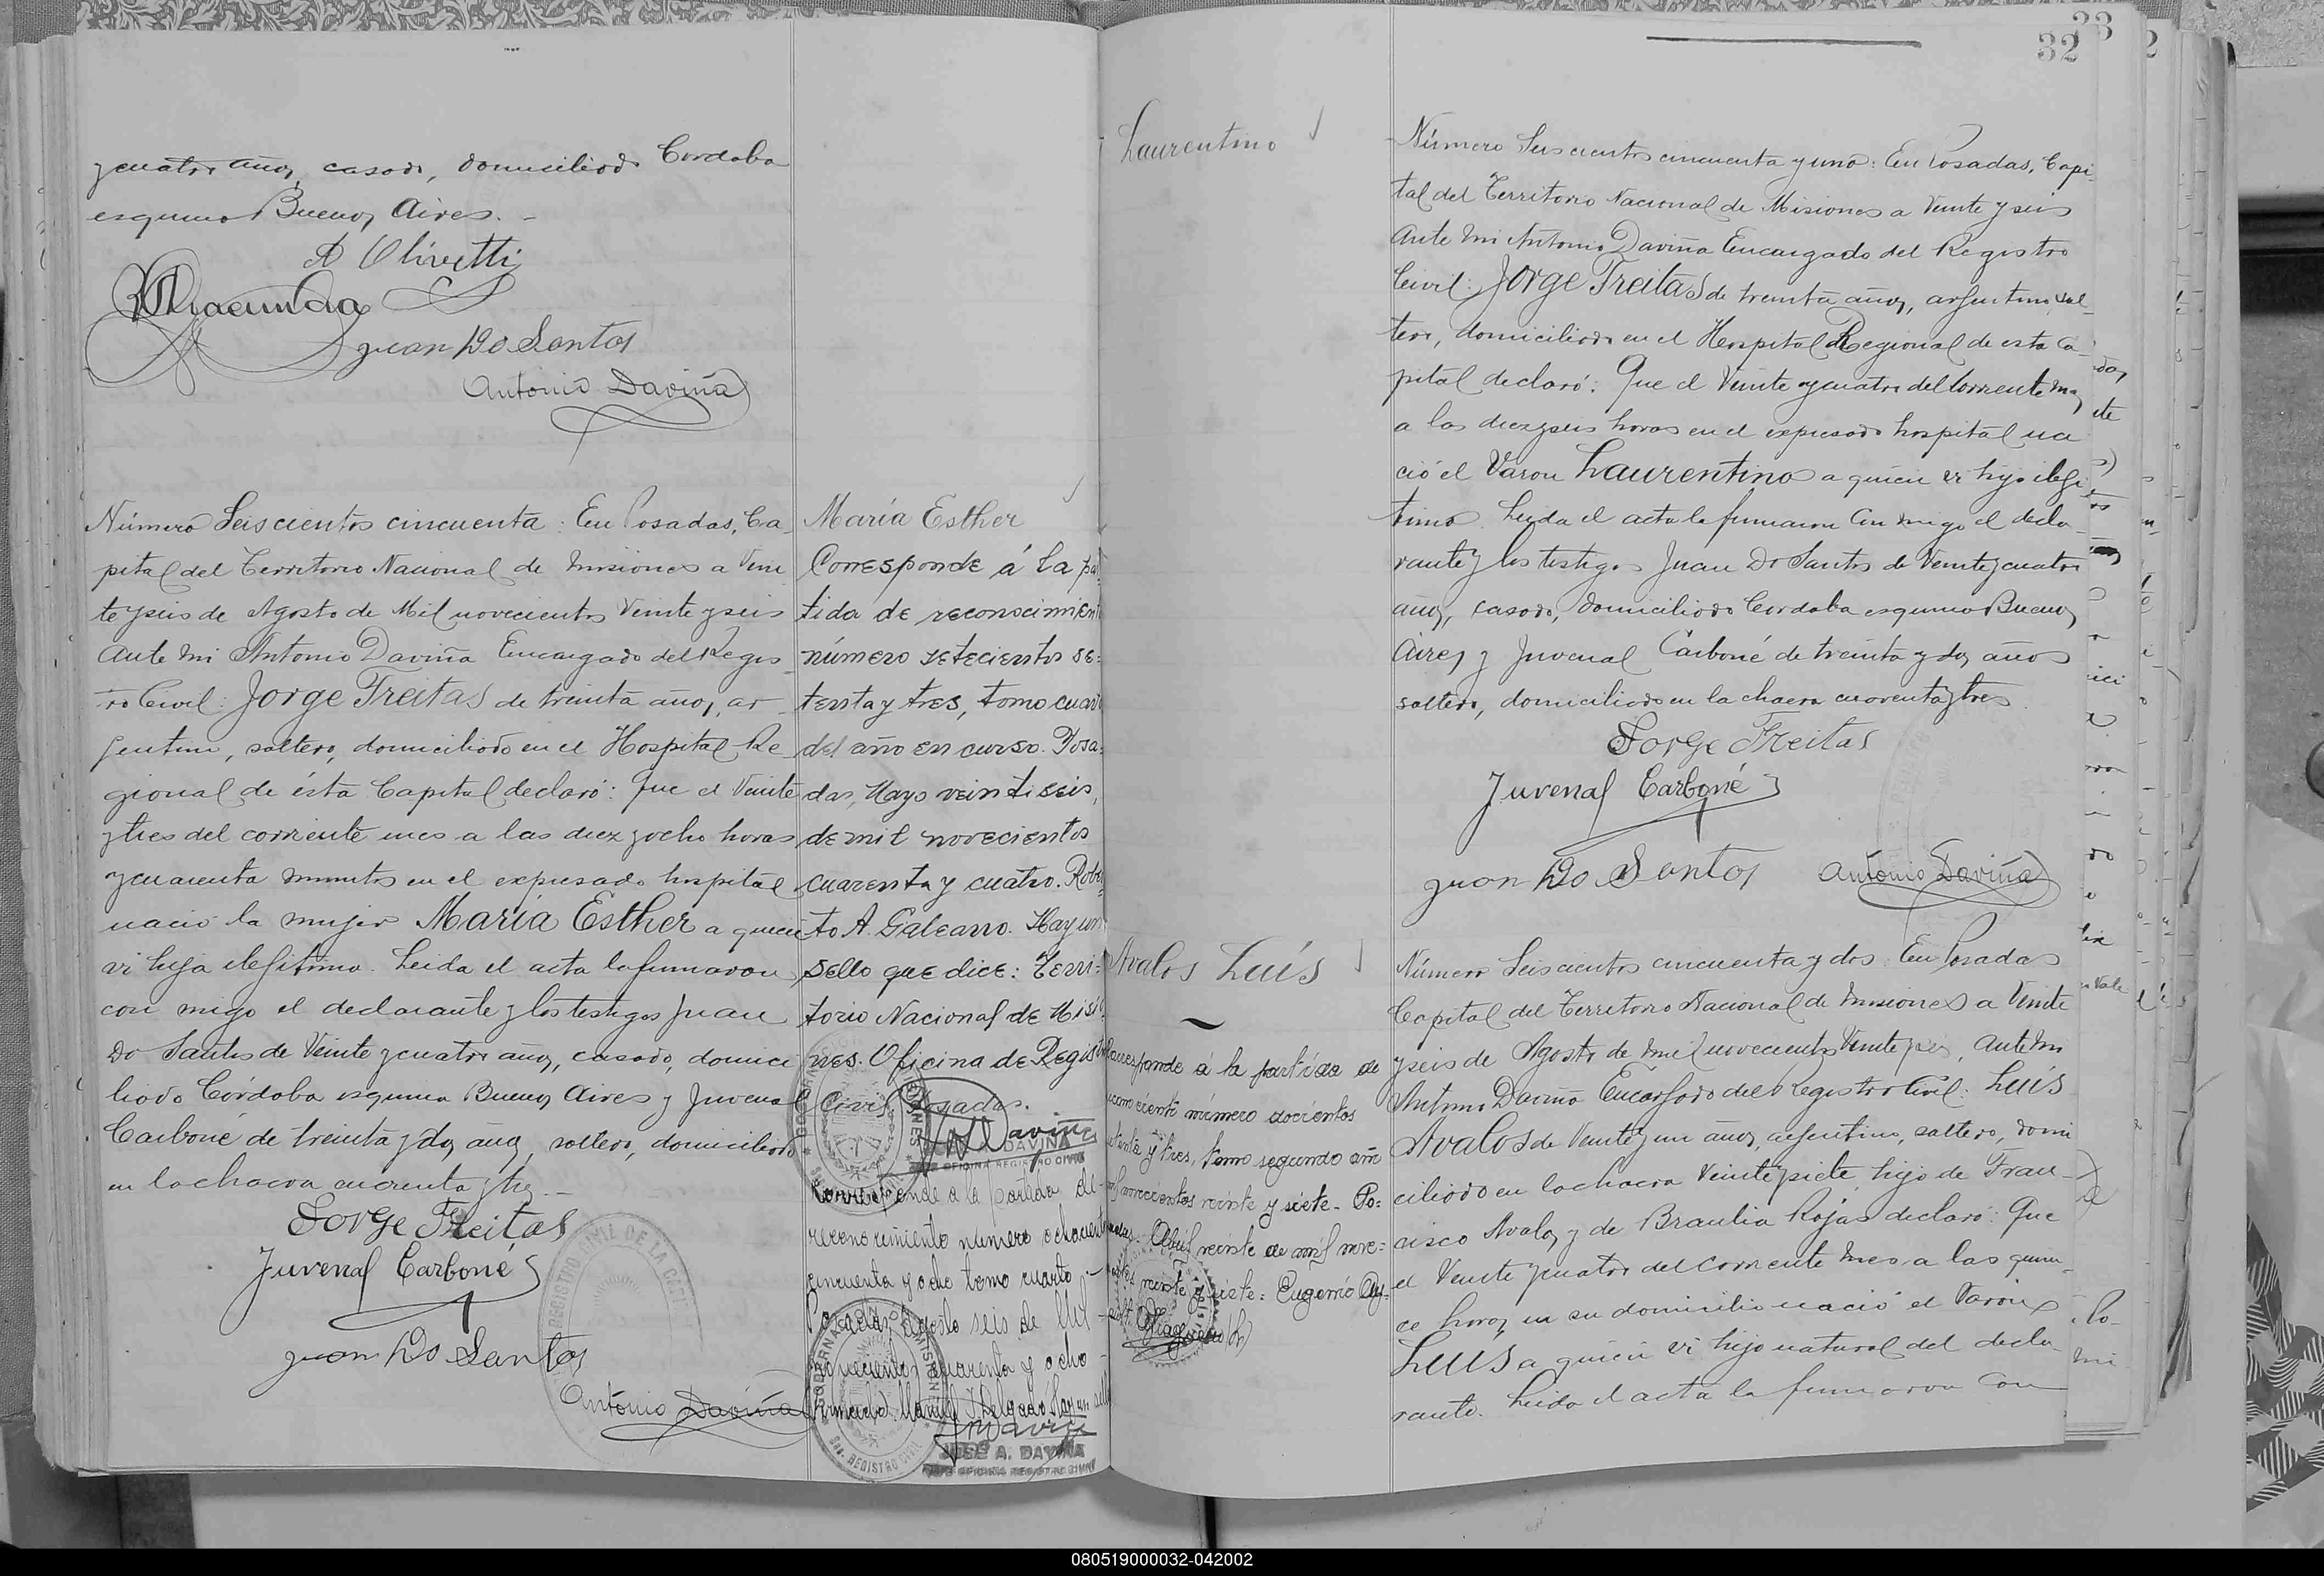 y cuatro años, casado, domiciliado Cordoba
esquina Buenos Aires. -
A Olivetti
Juan Do Santos
Antonio Daviña
Número Seiscientos cincuenta: En Posadas, Ca-
pital del Territorio Nacional de Misiones a Vein
te y seis de Agosto de Mil novecientos Veinte y seis
Ante mi Antonio Daviña Encargado del Regis-
tro Civil: Jorge Freitas de treinta años, ar-
gentino, soltero, domiciliado en el Hospital Re-
gional de ésta Capital declaró: Que el Veinte
y tres del corriente mes a las diez y ocho horas
y cuarenta minutos en el expresado hospital
nació la mujer María Esther a quien
vi hija ilegitima. Leida el acta la firmaron
con migo el declarante y los testigos Juan
Do Santos de Veinte y cuatro años, casado, domici
liado Córdoba esquina Buenos Aires y Juvenal
Carboné de treinta y dos años, soltero, domiciliado
en la chacra cuarenta y tres. -
Jorge Freitas
Juvenal Carboné
Juan Do Santos
Antonio Daviña
María Esther
Corresponde á la par
tida de reconocimient
número setecientos se=
tenta y tres, tomo cuart
del año en curso. Posa=
das, Mayo veintiseis,
de mil novecientos
cuarenta y cuatro. Rober=
to A. Galeano. Hay un
sello que dice: Terri=
torio Nacional de Misio
nes. Oficina de Registro
Civil Posadas.
Daviña
A. DAVIÑA
OFICINA REGISTRO CIVIL
Corresponde a la partida de
reconocimiento número ochocientos
cincuenta y ocho tomo cuarto -
Posadas, Agosto seis de Mil
novecientos cuarenta y ocho
Firmado: Manuel Delgado Hay un sello
JOSÉ A. DAVIÑA
JEFE OFICINA REGISTRO CIVIL
33
32
Laurentino
Número Seiscientos cincuenta y uno: En Posadas, Capi-
tal del Territorio Nacional de Misiones a Veinte y seis
Ante mi Antonio Daviña Encargado del Registro
Civil: Jorge Freitas de treinta años, argentino, sol-
tero, domiciliado en el Hospital Regional de esta Ca-
pital declaró: Que el Veinte y cuatro del corriente mes
a las diez y seis horas en el expresado hospital na
ció el Varon Laurentino a quien vi hijo ilegi
timo. Leida el acta la firmaron con migo el decla-
rante y los testigos Juan Do Santos de Veinte y cuatro
años, casado, domiciliado Cordoba esquina Buenos
Aires y Juvenal Carboné de treinta y dos años
soltero, domiciliado en la chacra cuarenta y tres.
Jorge Freitas
Juvenal Carboné
Juan Do Santos
Antonio Daviña
Avalos Luís
Corresponde á la partida de
número docientos
y tres, tomo segundo año
novecientos veinte y siete - Po=
sadas - Abril veinte de mil nove=
cientos veinte y siete = Eugenio
Número Seiscientos cincuenta y dos: En Posadas
Capital del Territorio Nacional de Misiones a Veinte
y seis de Agosto de mil novecientos Veinte y seis, Ante mi
Antonio Daviña Encargado del Registro Civil: Luís
Avalos de Veinte y un años, argentino, soltero, domi
ciliado en la chacra Veinte y siete, hijo de Fran-
cisco Avalos y de Braulia Rojas declaró: Que
el Veinte y cuatro del corriente mes a las quin-
ce horas en su domicilio nació el Varon
Luis a quien vi hijo natural del decla-
rante. Leida el acta la firmaron con
080519000032-042002